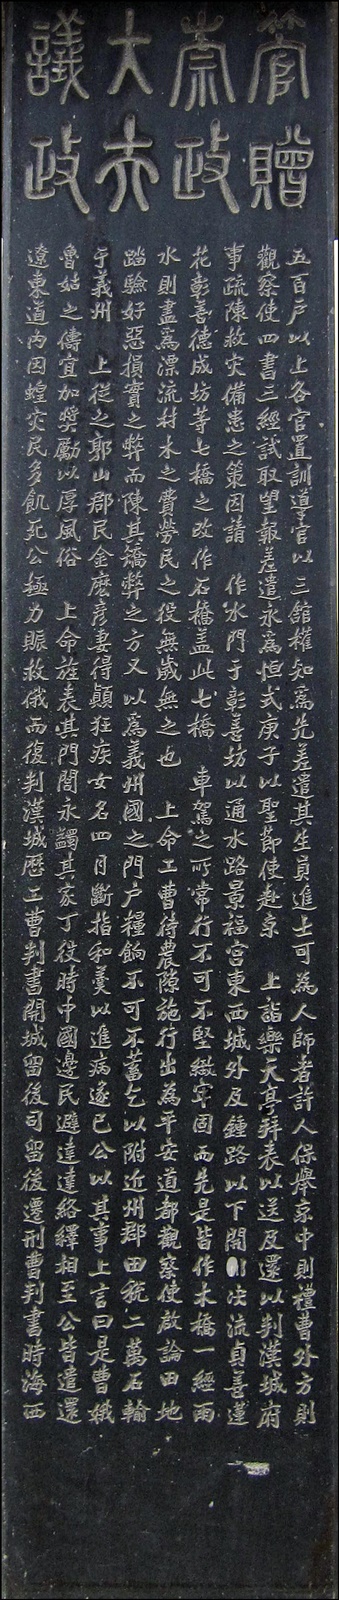 管贈
崇政
大夫
議政
五百戶以上各官置訓導官以三館權知爲先差遣其生員進士可為人師者許人保擧京中則禮曹外方則
觀察使四書三經試取望報差遣永爲恒式庚子以聖節使赴京 上詣樂天亭拜表以送及還以判漢城府
事疏陳救灾備患之策因請 作水門于彰善坊以通水路景福宮東西城外及鍾路以下開川次流貞善蓮
花彰善德成坊等七橋之改作石橋盖此七橋 車駕之所常行不可不堅緻牢固而先是皆作木橋一經雨
水則盡爲漂流材木之費勞民之役無歲無之也 上命工曹待農隙施行出為平安道都觀察使啟論田地
踏驗好惡損實之弊而陳其矯弊之方又以爲義州國之門戶糧餉不可不蓄乞以附近州郡田稅二萬石輸
于義州 上從之郭山郡民金麽彦妻得顚狂疾女名四月斷指和羹以進病遂已公以其事上言曰是曹娥
魯姑之儔宜加奬勵以厚風俗 上命旌表其門閭永蠲其家丁役時中國邊民避達達絡繹相至公皆遣還
遼東道內因蝗灾民多飢死公極力賑救俄而復判漢城歷工曹判書開城留後司留後遷刑曹判書時海西